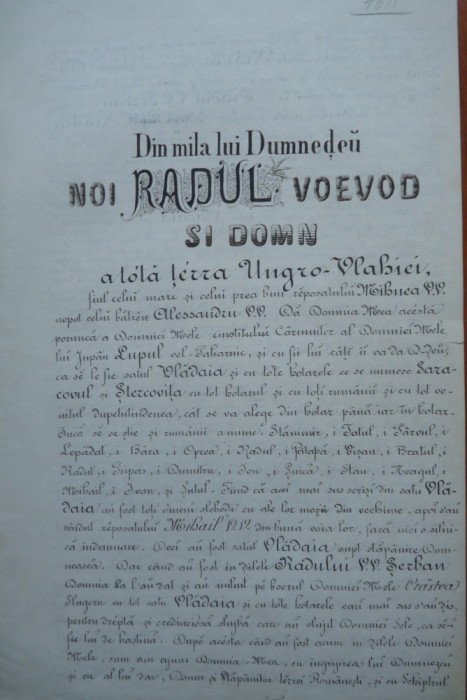 1611
Din mila lui Dumnedeŭ
NOI RADUL VOEVOD
SI DOMN
a tótă ţérra Ungro-Vlahiei,
fiul celui mare şi celui prea bun réposatului Mihnea V.V.
nepot celui bătrân Alessandru V.V. Dă Domnia Mea acéstă
poruncă a Domniei Mele cinstitului Cârmuitor al Domniei Mele
lui Jupân Lupul vel-, şi cu fii lui câţi ii va da D-deu,
ca sĕ le fie satul Vlădaia şi cu tóte hotarele ce se numesc Sara-
covul şi Ştercoviţa cu tot hotarul şi cu toţi rumânii şi cu tot ve-
nitul, cât se va alege din hotar până iar în hotar.
Încă sĕ se ştie şi rumânii a nume: Stănimir, i Tatul, i Fârvul, i
Lepădat, i Bâra, i Oprea, i Radul, i, i Vişan, i Bratul, i
Radul, i, i Dumitru, i Ion, i, i Stan, i Neagul, i
Mihail, i Ivan, şi. Fiind că aceî mai sus scrişi din satu Vlă-
daia au fost toţi ómeni slobodi cu ale lor moşii din vechime, apoi s'au
vândut réposatului Mihail V.V. din bună voia lor, fără nici o silni-
că îndemnare. Deci au fost satul Vlădaia supt stăpânire Dom-
nească. Dar când au fost în dilele Radului V.V. Şerban
Domnia sa l'au dat şi au miluit pe boerul Domniei Mele Cârstea
Slugeru cu tot satu Vlădaia şi cu tóte hotarele cari mai sus s'au dis,
pentru dréptă şi credinciósă slujbă care au slujit Domniei Sale, ca sĕ-i
fie lui de baştină. După acésta când au fost acum în dilele Domniei
Mele, cum am ajuns Domnia-Mea, cu îngrijirea lui Dumnedeu
şi cu al lui dar, Domn şi Stăpânitor ţĕrei Românesci, şi cu Schiptrul